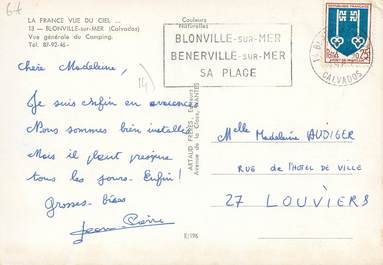 67
LA FRANCE VUE DU CIEL ...
13 — BLONVILLE-sur-MER (Calvados)
Vue générale du Camping.
Tél. 87-92-46 -
Couleurs
Naturelles
BLONVILLE-SUR-MER
BENERVILLE-SUR-MER
SA PLAGE
REPUBLIQUE FRANÇAISE
CALVADOS
Chère Madeleine,
Je suis enfin en vacances
Nous sommes bien installés
Mais il pleut presque
tous les jours. Enfin!
Grosses bises
ARTAUD FRÈRES, Éditeurs
NANTES
E/196
Melle Madeleine AUDIGER
RUE de l'HOTEL DE VILLE
27 LOUVIERS